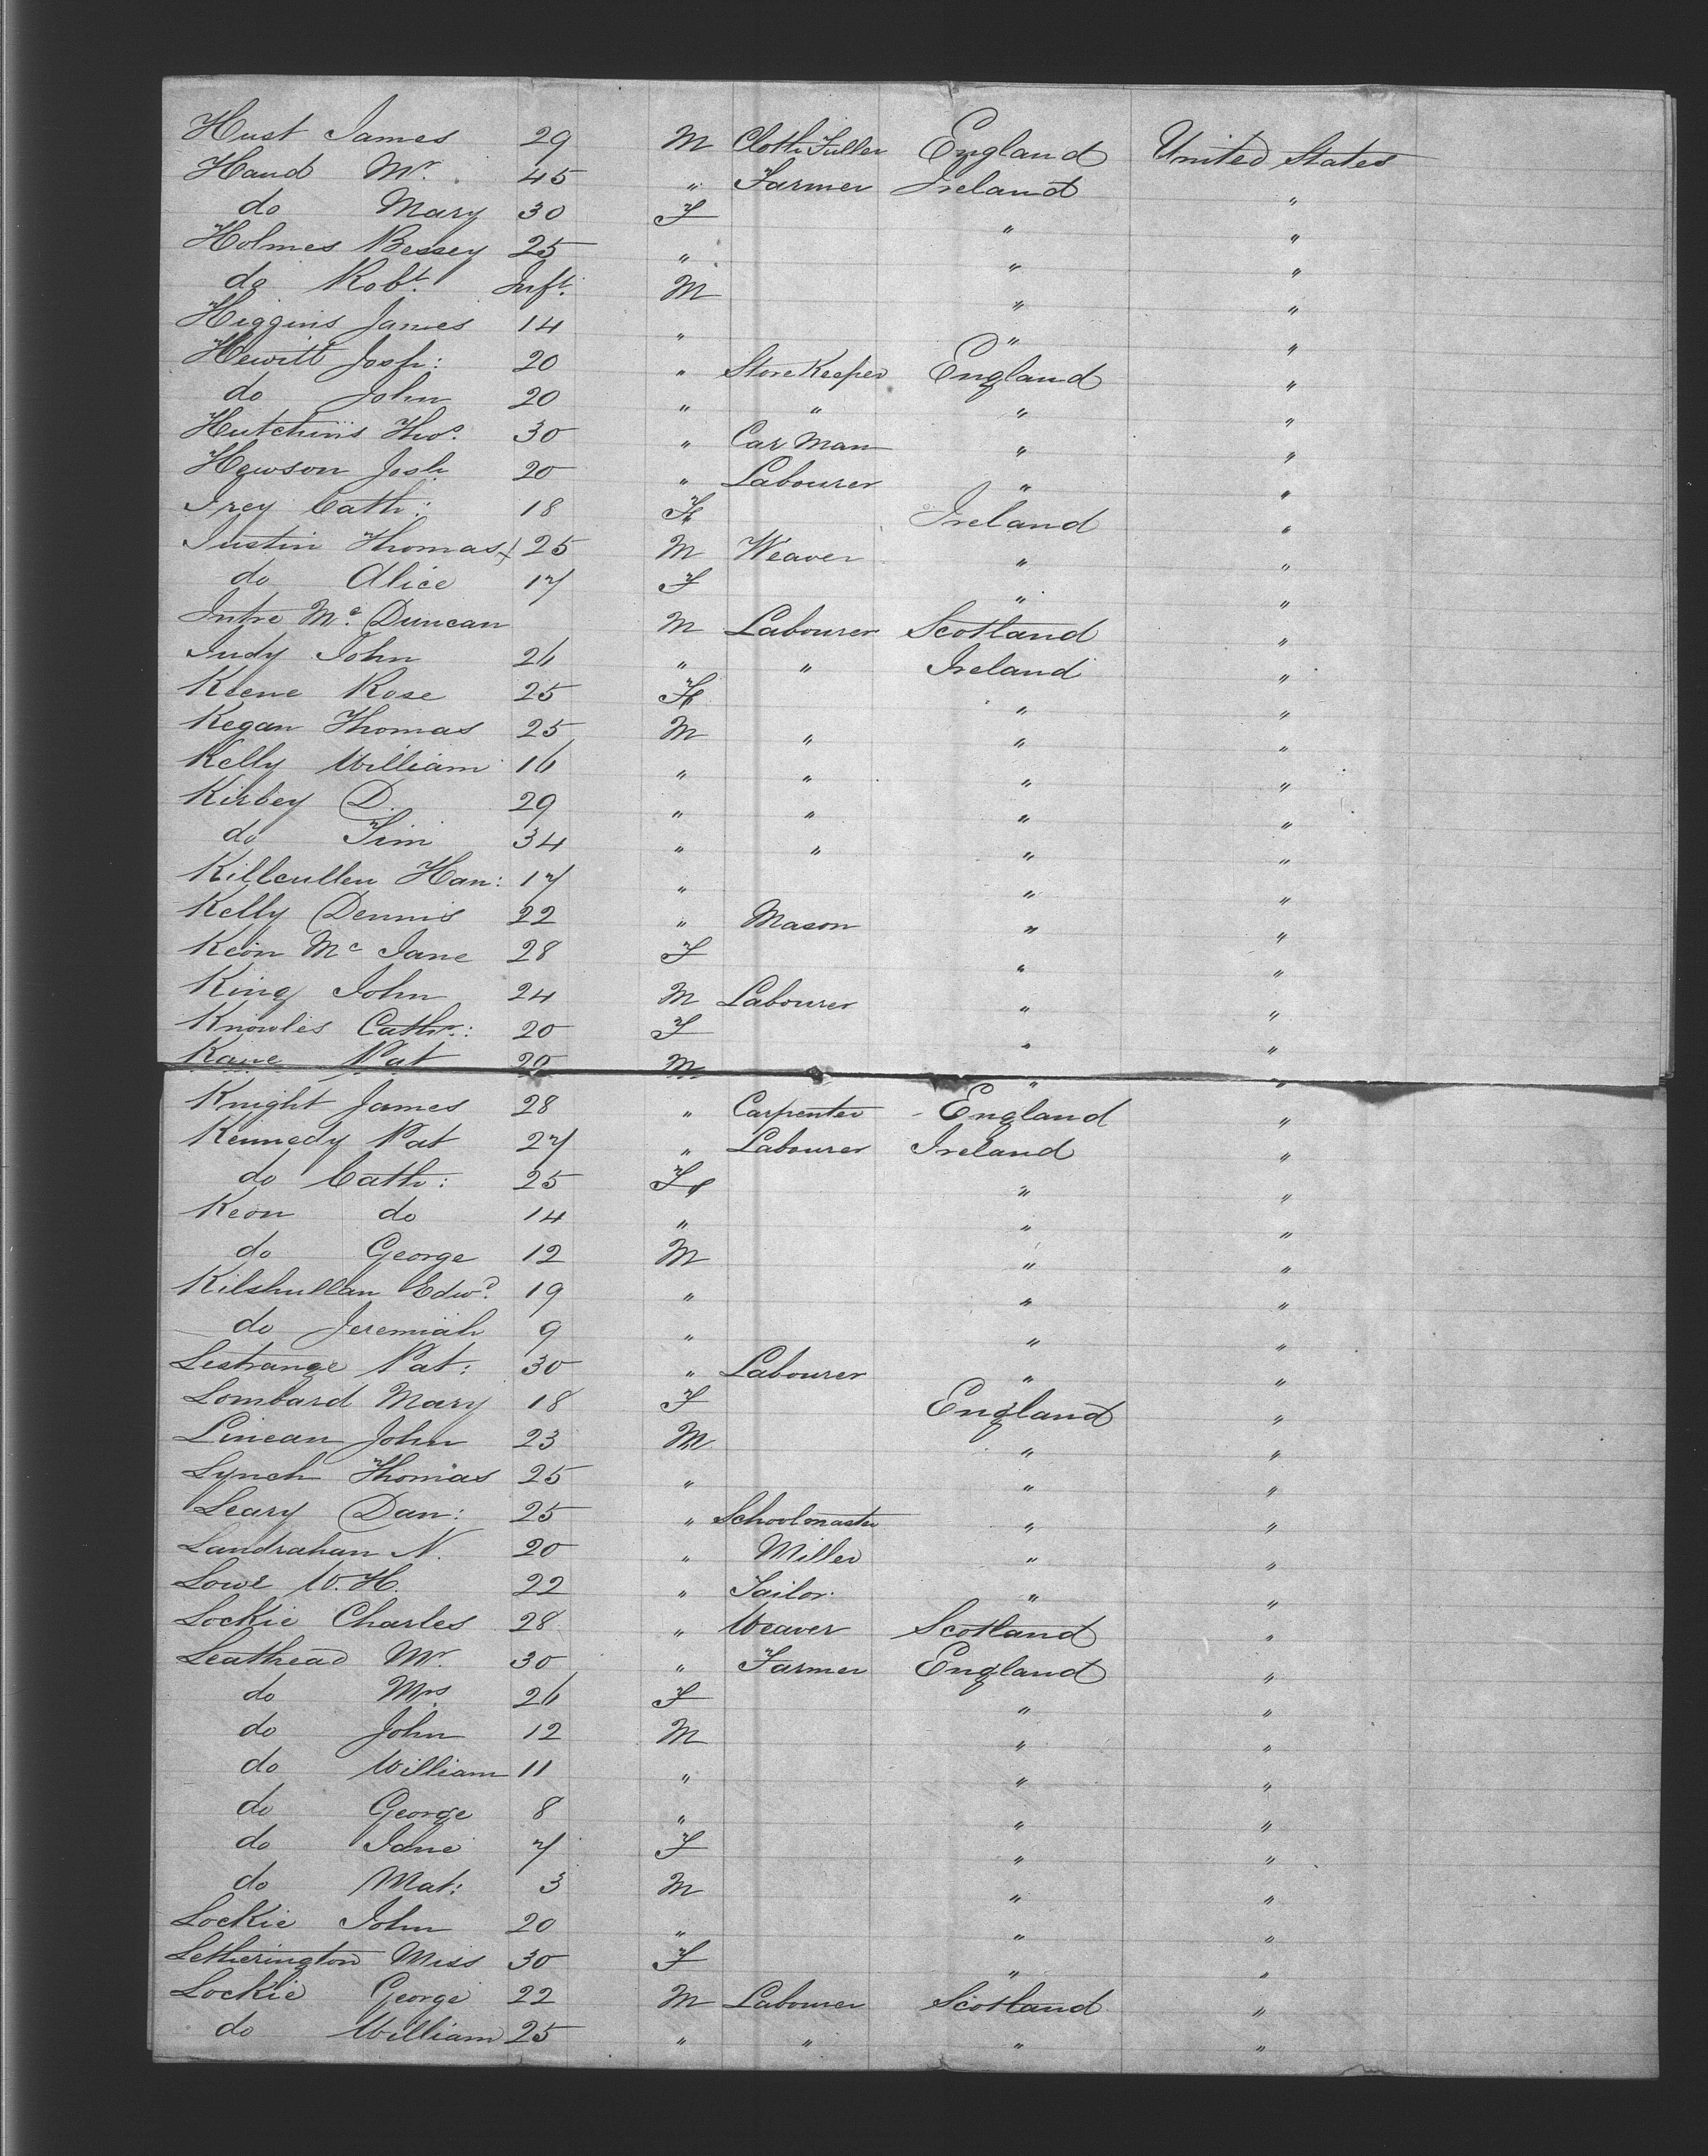 Hust James 29 M Cloth Fuller England United States
Hand Mr. 45 " Farmer Ireland "
do Mary 30 F " "
Holmes Bessey 25 " " "
do Robt. Inft. M " "
Higgins James 14 " " "
Hewitt Josh: 20 " Store Keeper England "
do John 20 " " " "
Hutchins Thos. 30 " Car Man " "
Hewson Josh 20 " Labourer " "
Irey Cath: 18 F Ireland "
Justin Thomas 25 M Weaver " "
do Alice 17 F " "
Intre Mc. Duncan M Labourer Scotland "
Judy John 26 " " Ireland "
Keene Rose 25 F " "
Kegan Thomas 25 M " " "
Kelly William 16 " " " "
Kirbey D. 29 " " " "
do Tim 34 " " " "
Killcullen Han: 17 " " "
Kelly Dennis 22 " Mason " "
Keon Mc Jane 28 F " "
King John 24 M Labourer " "
Knowles Cathr: 20 F " "
Kane Pat 20 M " "
Knight James 28 " Carpenter England "
Kennedy Pat 27 " Labourer Ireland "
do Cath: 25 F " "
Keon do 14 " " "
do George 12 M " "
Kilshullan Edwd. 19 " " "
do Jeremiah 9 " " "
Lestrange Pat: 30 " Labourer " "
Lombard Mary 18 F England "
Linean John 23 M " "
Lynch Thomas 25 " " "
Leary Dan: 25 " Schoolmaster " "
Landrahan N. 20 " Miller " "
Lowe W. H. 22 " Tailor " "
Lockie Charles 28 " Weaver Scotland "
Leathead Mr. 30 " Farmer England "
do Mrs 26 F " "
do John 12 M " "
do William 11 " " "
do George 8 " " "
do Jane 7 F " "
do Mat: 3 M " "
Lockie John 20 " " "
Letherington Miss 30 F " "
Lockie George 22 M Labourer Scotland "
do William 25 " " " "